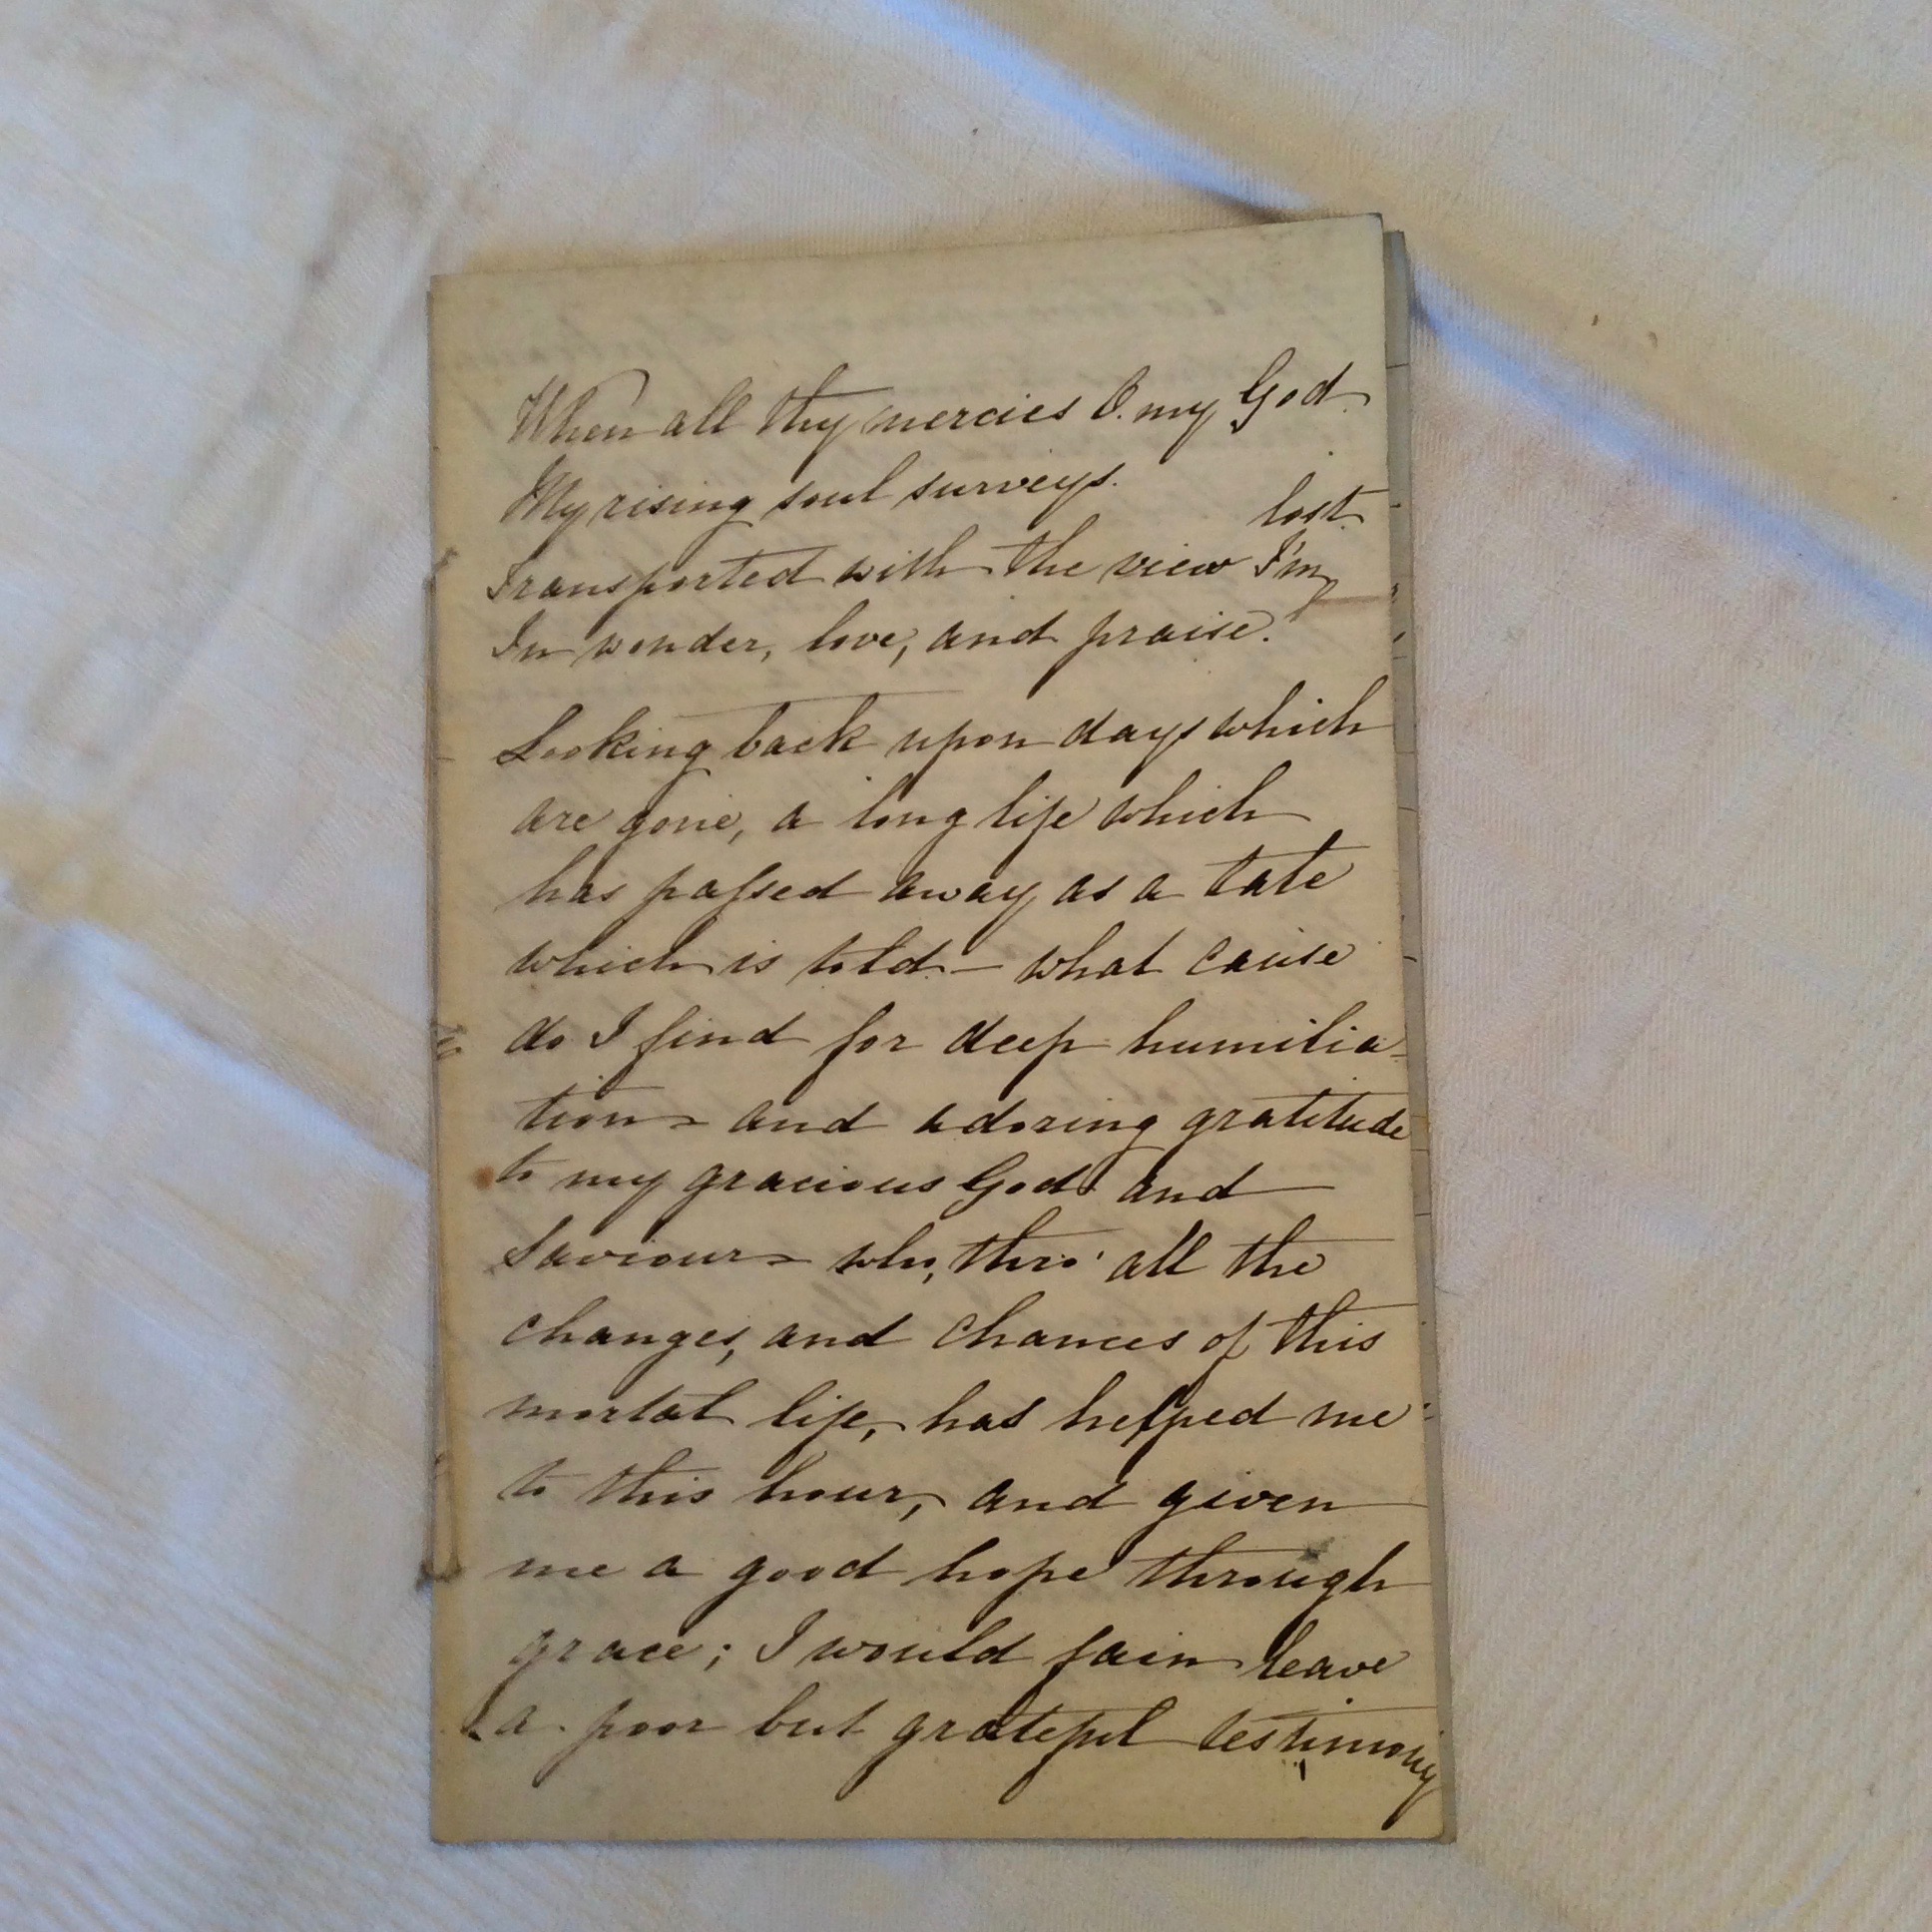 When all thy mercies O. my God.
My rising soul surveys.
lost
Transported with the view I'm
In wonder, love, and praise.
Looking back upon days which
are gone, a long life which
has paſsed away as a tale
which is told – what cause
do I find for deep humilia-
tion – and adoring gratitude
to my gracious God and
Saviour – who, thro' all the
changes, and chances of this
mortal life, has helped me
to this hour, and given
me a good hope through
grace; I would fain leave
a poor but grateful testimony